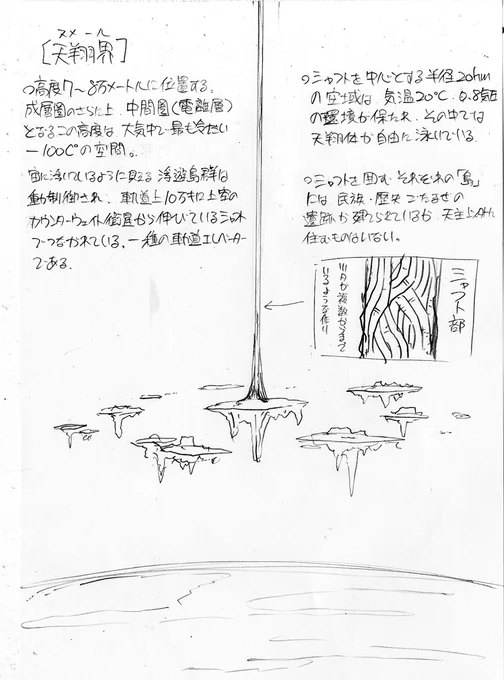 スメール
[天翔界]
○高度7〜8万メートルに位置する。
成層圏のさらに上、中間圏(電離層)
となるこの高度は、大気中で最も冷たい
-100℃の空間。
宙に浮いているように見える浮遊島群は
重力制御され、軌道上10万キロ上空の
カウンターウェイト衛星から伸びているシャフト
でつながれている、一種の軌道エレベーター
である。
○シャフトを中心とする半径20kmの
の空域は、気温20℃、0.8気圧
の環境が保たれ、その中では
天翔体が自由に泳いでいる。
○シャフトを囲む、それぞれの「島」
には民族・歴史ごたまぜの
遺跡が建てられているが、天主以外に
住むものはいない。
シャフト部
複数からまって
いるような作り